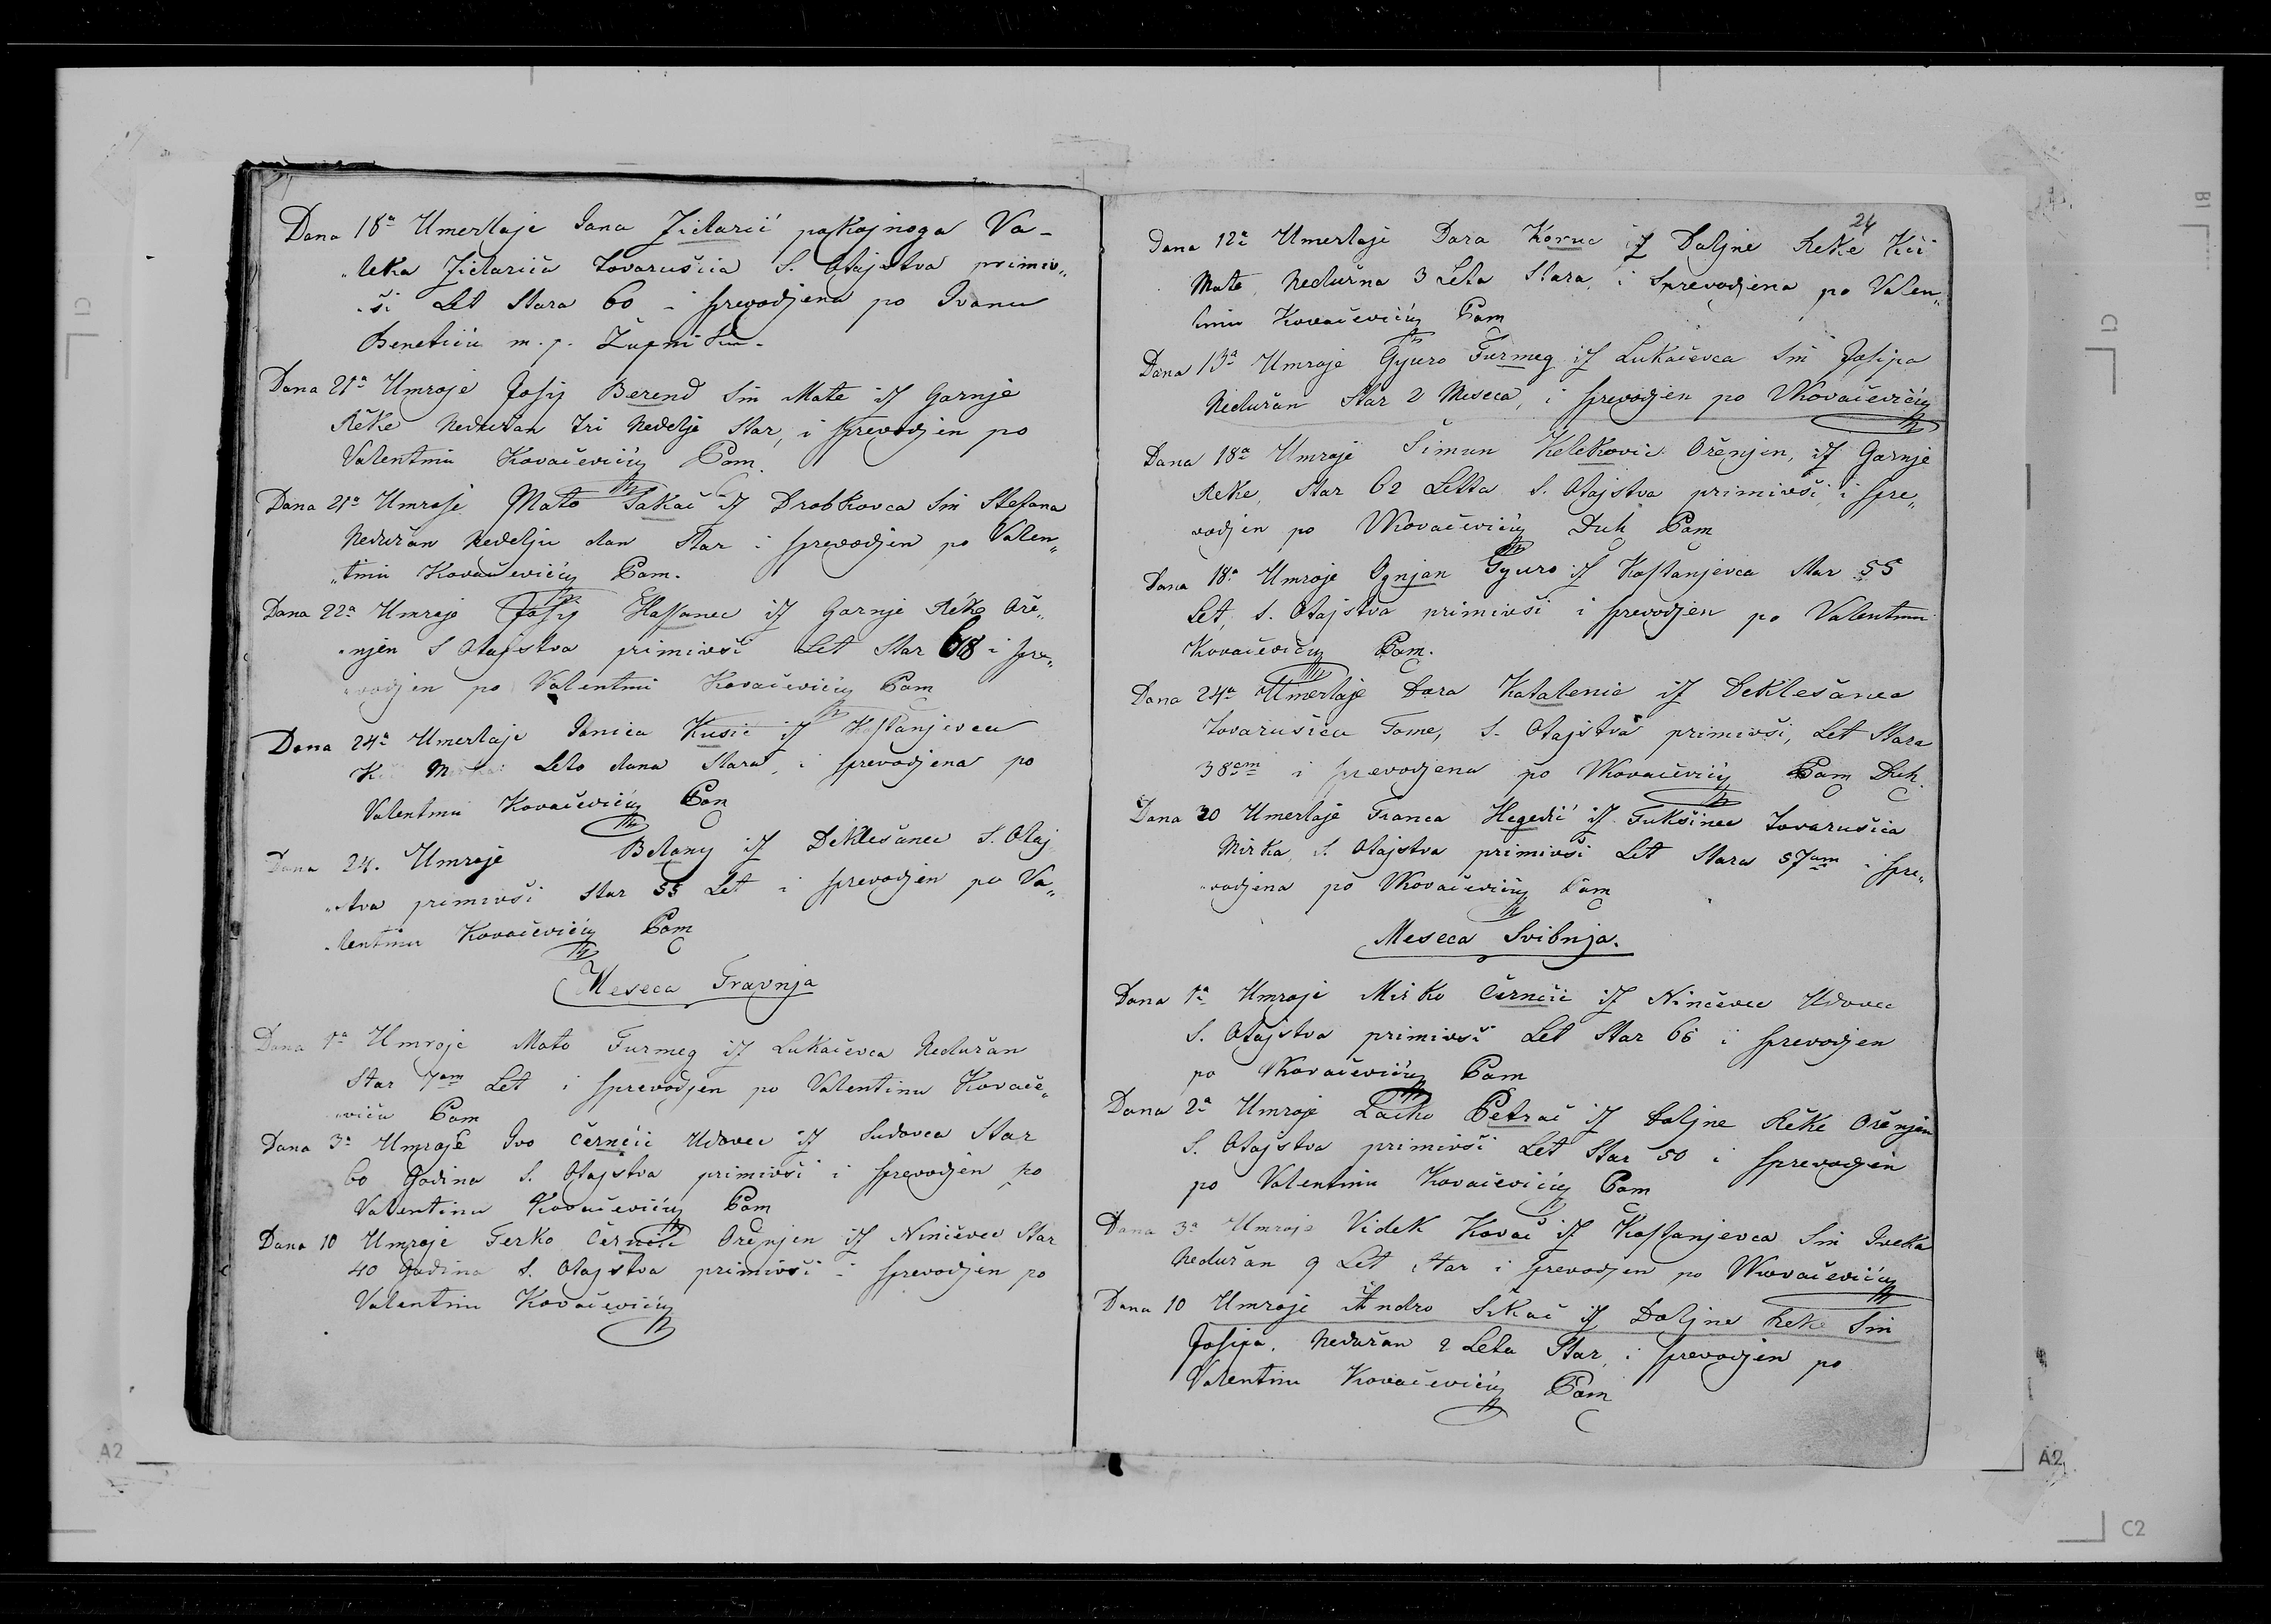 Dana 18a Umerlaje Jana Zidarić pokojnoga Va-
leka Zidarića Tovarušica S. Otajstva primiv„
ši Let Stara 60 i sprevodjena po Ivanu
Benetiću m. p. Župniku.
Dana 21a Umroje Josip Berend Sin Mate iz Gornje
Rěke Nedužan tri Nedelje Star, i sprevodjen po
Valentinu Kovačeviću Cam.
Dana 21a Umroje Mato Sakač iz Drobkovca Sin Stefana
Nedužan Nedelju dan Star i sprevodjen po Valen„
„tinu Kovačeviću Cam.
Dana 22a Umroje Josip Hassanec iz Gornje Rěke Ože„
„njen S Otajstva primivši Let Star 68 i spre„
„vodjen po Valentinu Kovačeviću Cam
Dana 24a Umerlaje Janica Kusić iz Kostanjevca
Leto dana Stara, i sprevodjena po
Valentinu Kovačeviću Cam
Dana 24. Umroje Belany iz Deklešanec S. Otaj
„stva primivši Star 55 Let i sprevodjen po Va„
„lentinu Kovačeviću Cam
Meseca Travnja
Dana 1a Umroje Mato Furmeg iz Lukačevca Nedužan
Star 7am Let i sprevodjen po Valentinu Kovače„
„viću Cam
Dana 3a Umroje Ivo Černčić Udovec iz Sudovca Star
60 Godina S. Otajstva primivši i sprevodjen po
Valentinu Kovačeviću Cam
Dana 10 Umroje Ferko Černčić Oženjen iz Ninčevec Star
40 Godina S. Otajstva primivši i sprevodjen po
Valentinu Kovačeviću
24
Dana 12a Umerlaje Dara Koruc iz Doljne Reke Kći
Mate, Nedužna 3 Leta Stara, i Sprevodjena po Valen„
tinu Kovačeviću Cam
Dana 13a Umroje Gyuro Furmeg iz Lukačevca Sin Josipa
Nedužan Star 2 Meseca, i sprevodjen po VKovačeviću
Dana 18a Umroje Šimun Kelekovic Oženjen, iz Gornje
Reke, Star 62 Letta S. Otajstva primivši, i spre„
vodjen po VKovačeviću Duh Cam
Dana 18a Umroje Ognjan Gyuro iz Kostanjevca Star 55
Let, S. Otajstva primivši i sprevodjen po Valentinu
Kovačeviću Cam.
Dana 24a Umerlaje Dora Katalenic iz Deklešanec
Tovarušica Tome, S. Otajstva primivši, Let Stara
38em i sprevodjena po VKovačeviću Cam Duh.
Dana 30 Umerlaje Franca Hegedić iz Fukšinec Tovarušica
Mirka, S. Otajstva primivši Let Stara 57am i spre„
„vodjena po VKovačeviću Cam
Meseca Svibnja.
Dana 1a Umroje Mirko Černčić iz Ninčevec Udovec
S. Otajstva primivši Let Star 65 i sprevodjen
po VKovačeviću Cam
Dana 2a Umroje Lacko Petrač iz Doljne Rěke Oženjen
S. Otajstva primivši Let Star 50 i sprevodjen
po Valentinu Kovačeviću Cam
Dana 3a Umroje Videk Kovač iz Kostanjevca Sin Iveka
Nedužan 9 Let Star i sprevodjen po VKovačeviću
Dana 10 Umroje Andro Sikač iz Doljne Reke Sin
Josipa, Nedužan 2 Leta Star, i sprevodjen po
Valentinu Kovačeviću Cam
C1
A2
B1
C1
A2
C2